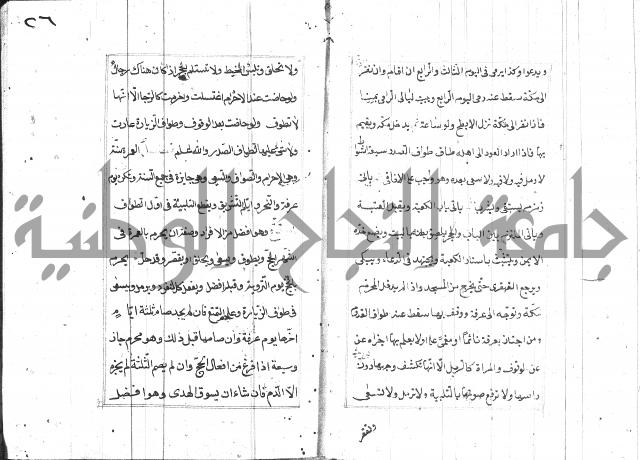 ٢٦
ويدعوا وكذا يرمى في اليوم الثالث والرابع ان اقام وان نفر
الى مكة سقط عند رمى اليوم الرابع ويبيت ليالى الرمى بمنى
فاذا نفر الى مكة نزل الابطح ولو ساعة ثم يدخل مكة ويقيم
بها فاذا اراد العود الى اهله طاف طواف الصدر سبعة اشواط
لا رمل فيه ولا سعى بعده وهو واجب على الافاقى ياتى
زمزم يستقى ويشرب ياتى باب الكعبة ويقبل العتبة
وياتى الملتزم بين الباب والحجر يلصق بطنه بالبيت ويضع خده
الايمن ويتشبث باستار الكعبة ويجتهد في الدعاء ويبكى
ويرجع القهقرى حتى يخرج من المسجد واذ لم يدخل المحرم
مكة وتوجه الى عرفة ووقف بها سقط عنه طواف القدوم
ومن اجتاز بعرفة نائما او مغمى عليه او لا يعلم بها اجزاه عن
الوقوف والمراة كالرجل الا انها تكشف وجهها دون
راسها ولا ترفع صوتها بالتلبية ولا ترمل ولا تسعى
ولا تحلق وتلبس المخيط ولا تستلم الحجر اذ كان هناك رجال
ولو حاضت عند الاحرام اغتسلت واحرمت كالرجل الا انها
لا تطوف ولو حاضت بعد الوقوف وطواف الزيارة عادت
ولا شئ عليها لطواف الصدر والله اعلم العمرة سنة
وهى الاحرام والطواف والسعى وهى جايزة في جميع السنة وتكره يوم
عرفة والنحر وايام التشريق ويقطع التلبية في اول الطواف
وهو افضل من الافراد وصفته ان يحرم بالعمرة في
اشهر الحج ويطوف ويسعى ويحلق او يقصر وقد حل يحرم
بالحج يوم التروية وقبله افضل ويفعل كالمفرد ويرمل ويسعى
في طواف الزيارة وعليه دم التمتع فان لم يجد صام ثلثة ايام
اخرها يوم عرفة وان صامها قبل ذلك وهو محرم جاز
وسبعة اذا فرغ من افعال الحج وان لم يصم الثلثة لم يجزه
الا الدم فان شاء ان يسوق الهدى وهو افضل
جامعة النجاح الوطنية